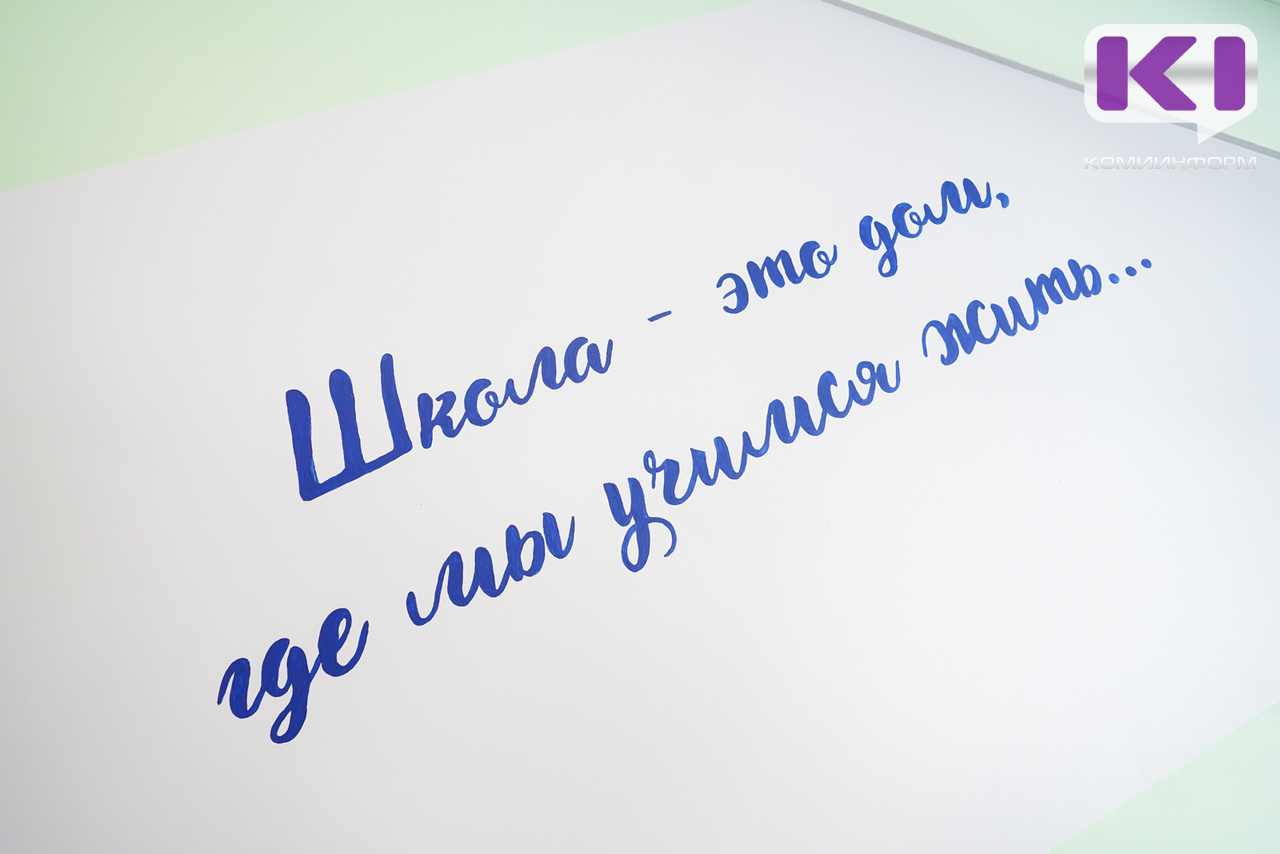 KI
КОМИИНФОРМ
Школа - это дом,
где мы учимся жить...